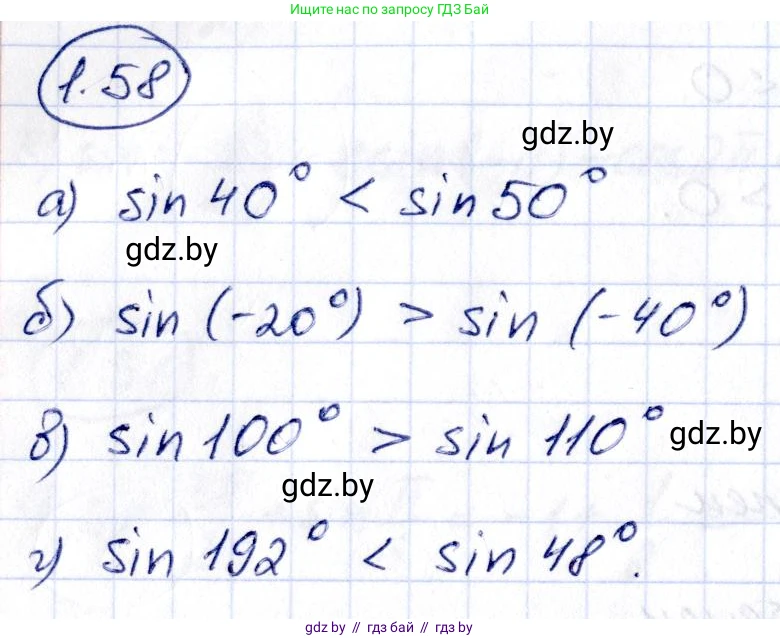 Ищите нас по запросу ГДЗ Бай
1.58
gdz.by
а) sin 40° < sin 50°
gdz.by
б) sin (-20°) > sin (-40°)
в) sin 100° > sin 110°
gdz.by
gdz.by
г) sin 192° < sin 48°.
gdz.by // гдз бай // gdz.by